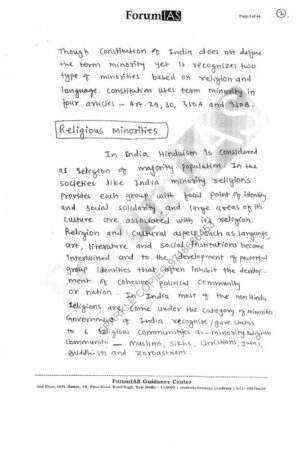 ForumIAS
Page 2 of 44
2.
Though Constitution of India does not define
the term minority yet it recognizes two
type of minorities based on religion and
language. Constitution uses term minority in
four articles - Art. 29, 30, 350A and 350B.
Religious Minorities
In India Hinduism is considered
as religion of majority population. In the
societies like India minority religions
provides each group with focal point of identity
and social solidarity and large areas of its
culture are associated with its religion.
Religion and cultural aspect such as language
art, literature and social institutions become
intertwined and to the development of powerful
group identities that often inhibit the develop-
ment of cohesive political community
or nation. In India most of the non Hindu
religions are come under the category of minorities
Government of India recognise/gave status
to 6 religious communities as - minority religious
Community - Muslims, Sikhs, Christians, Jains,
Buddhists and Zoroastrians.
ForumIAS Guidance Center
2nd Floor, IAPL House, 19, Pusa Road, Karol Bagh, New Delhi - 110005 | student@forumias.academy | 011-49878625